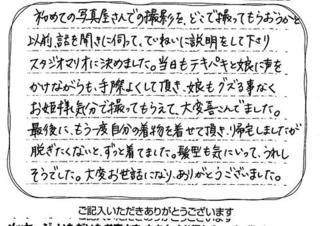 初めての写真屋さんでの撮影を、どこで撮ってもらおうかと
以前、話を聞きに伺って、ていねいに説明をして下さり
スタジオマリオに決めました。当日もテキパキと娘に声を
かけながらも、手際よくして頂き、娘もグズる事なく
お姫様気分で撮ってもらえて、大変喜んでました。
最後に、もう一度自分の着物を着せて頂き、帰宅しましたが
脱ぎたくないと、ずっと着てました。髪型も気にいって、うれし
そうでした。大変お世話になり、ありがとうございました。
ご記入いただきありがとうございます